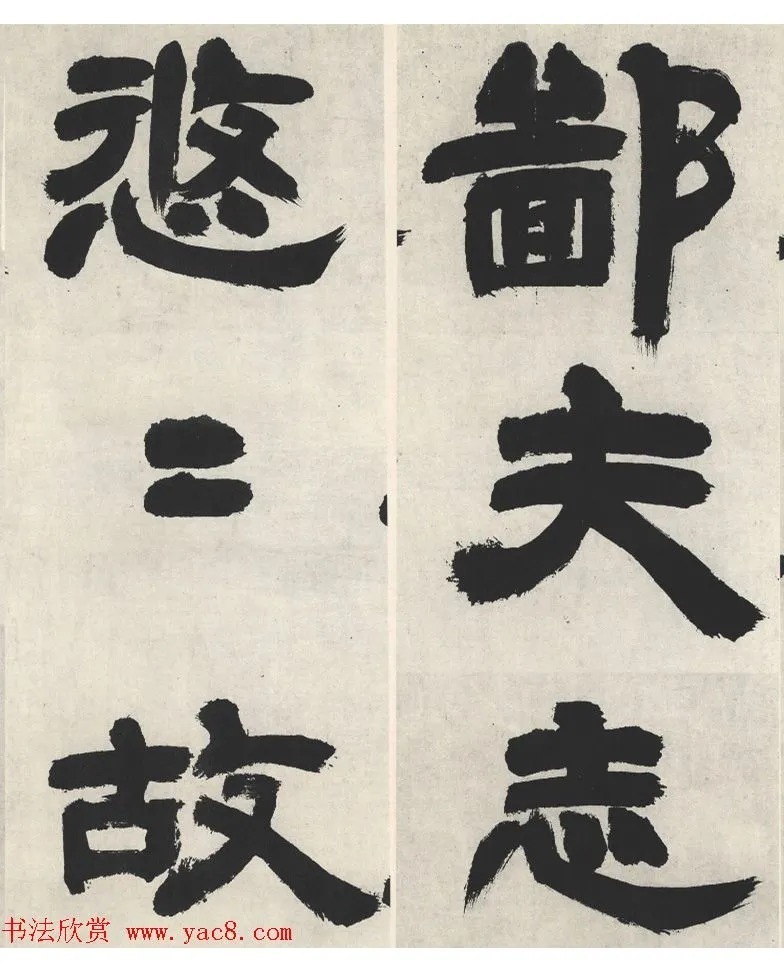 鄙夫志
悠二故
书法欣赏 www.yac8.com